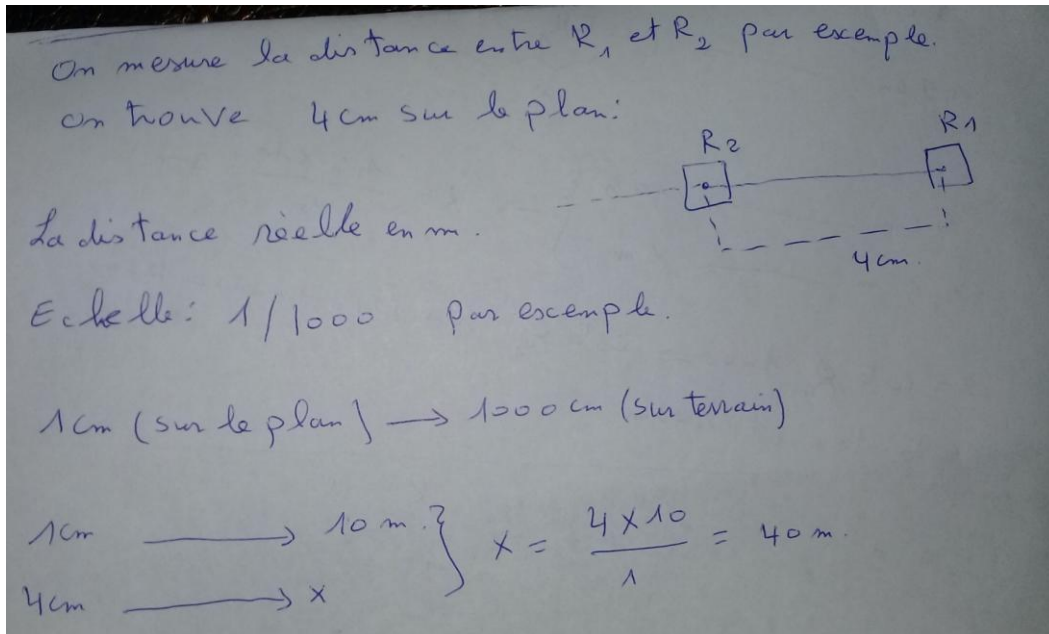 On mesure la distance entre R₁ et R₂ par exemple.
on trouve 4cm sur le plan:
R2
R1
4cm.
La distance réelle en m.
Echelle: 1/1000 par exemple.
1cm (sur le plan) → 1000cm (sur terrain)
1cm → 10 m. } x = 4 x 10 / 1 = 40 m.
4cm → x